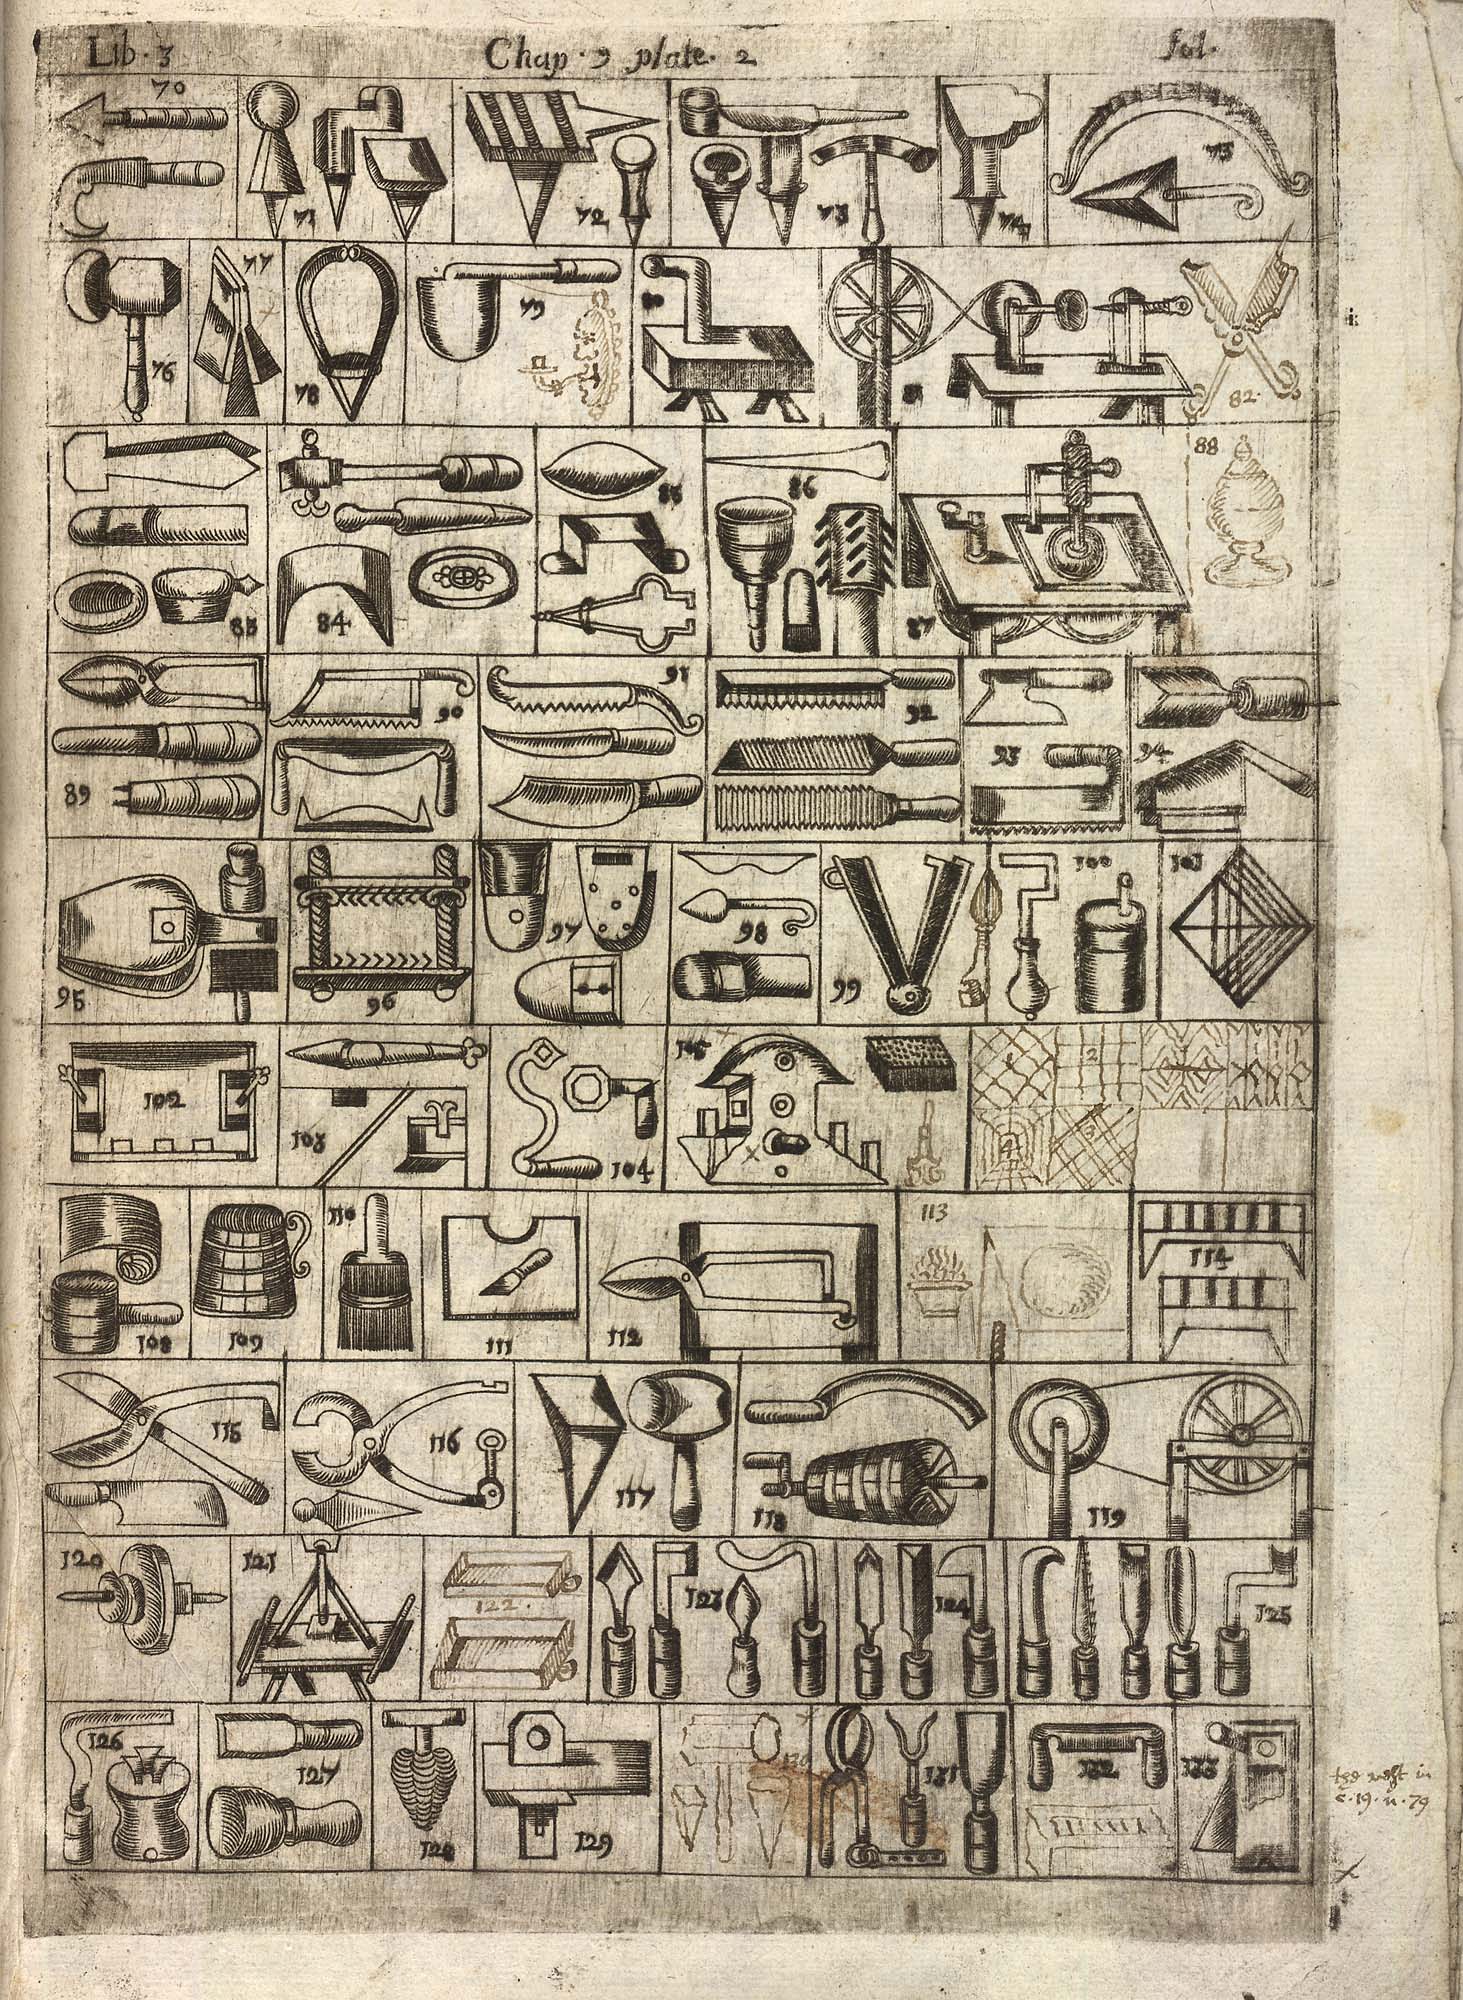 Lib. 3 Chap. 9 plate. 2 fol.
70 71 72 73 74 75
76 77 78 79 80 81 82
83 84 85 86 87 88
89 90 91 92 93 94
95 96 97 98 99 100 101
102 103 104 105 1 2 3 4
108 109 110 111 112 113 114
115 116 117 118 119
120 121 122. 123 124 125
126 127 128 129 130 131 132 133
the rest in
c. 19. n. 79